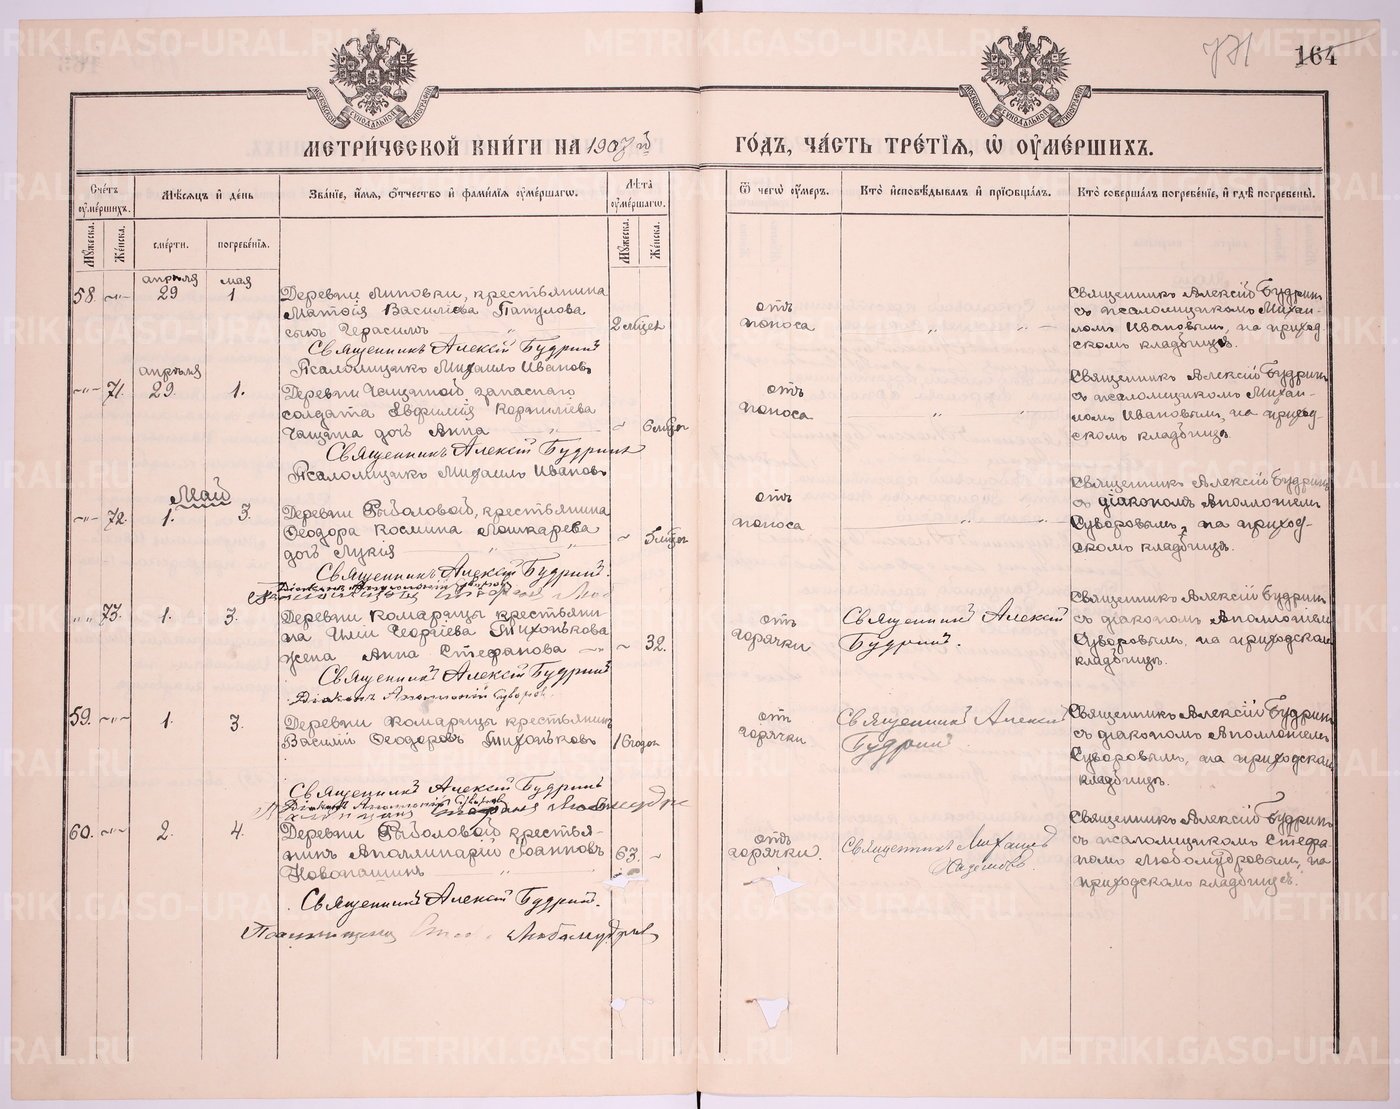 771
164
МЕТРИ́ЧЕСКОЙ КНИ́ГИ НА 1907 й
ГО́ДЪ, ЧА́СТЬ ТРЕ́ТІЯ, Ѽ ОУ҆МЕ́РШИХЪ.
Сче́тъ оу҆ме́ршихъ.
Мѣсѧцъ и҆ де́нь
Зва́ніе, и҆́мѧ, ѻ҆́тчество и҆ фами́лїѧ оу҆ме́ршагѡ.
Лѣ́та оу҆ме́ршагѡ.
Ѿ чегѡ̀ оу҆́меръ.
Кто̀ и҆сповѣ́дывалъ и҆ прїѡбща́лъ.
Кто̀ соверша́лъ погребе́нїе, и҆ гдѣ̀ погребены̀.
Мꙋ́жеска.
Же́нска.
сме́рти.
погребе́нїѧ.
Мꙋ́жеска.
Же́нска.
апрѣля мая
58. -"- 29 1
Деревни Липовки, крестьянина
Матөія Василіева Папулова
сынъ Герасимъ
2 мѣсец
Священникъ Алексій Будринъ
Псаломщикъ Михаилъ Ивановъ
отъ
поноса
Священникъ Алексій Будринъ
съ псаломщикомъ Михаи-
ломъ Ивановымъ, на приход-
скомъ кладбищѣ.
апрѣля
-"- 71. 29. 1.
Деревни Чащиной, запаснаго
солдата Евфимія Корнилiева
Чащина дочь Анна
6 мѣсец
Священникъ Алексій Будринъ
Псаломщикъ Михаилъ Ивановъ
отъ
поноса
Священникъ Алексій Будринъ
съ псаломщикомъ Михаи-
ломъ Ивановымъ, на приход-
скомъ кладбищѣ
Май
-"- 72. 1. 3.
Деревни Рыболовой, крестьянина
Ѳеодора Космина Лошкарева
дочь Лукія
5 мѣсец
Священникъ Алексій Будринъ.
Діаконъ Аполлоній Суворовъ
отъ
поноса
Священникъ Алексій Будринъ
съ діакономъ Аполлоніемъ
Суворовымъ, на приход-
скомъ кладбищѣ.
"" 73. 1. 3.
Деревни Комарицы крестьяни-
на Иліи Георгіева Тихонькова
жена Анна Стефанова
32.
Священникъ Алексій Будринъ
Діаконъ Аполлоній Суворовъ
отъ
горячки
Священникъ Алексій
Будринъ.
Священникъ Алексій Будринъ
съ діакономъ Аполлоніемъ
Суворовымъ, на приходскомъ
кладбищѣ.
59. -"- 1. 3.
Деревни Комарицы крестьянинъ
Василій Ѳеодоровъ Тихоньковъ
16 годов
Священникъ Алексій Будринъ
Діаконъ Аполлоній Суворовъ
отъ
горячки
Священникъ Алексій
Будринъ
Священникъ Алексій Будринъ
съ діакономъ Аполлоніемъ
Суворовымъ, на приходскомъ
кладбищѣ
60. -"- 2. 4.
Деревни Рыболовой крестья-
нинъ Аполлинарій Іоанновъ
Новопашинъ
63.
Священникъ Алексій Будринъ.
Любомудровъ
отъ
горячки.
Священникъ Михаилъ
Священникъ Алексій Будринъ
съ псаломщикомъ Стефа-
номъ Любомудровымъ, на
приходскомъ кладбищѣ.
METRIKI.GASO-URAL.RU